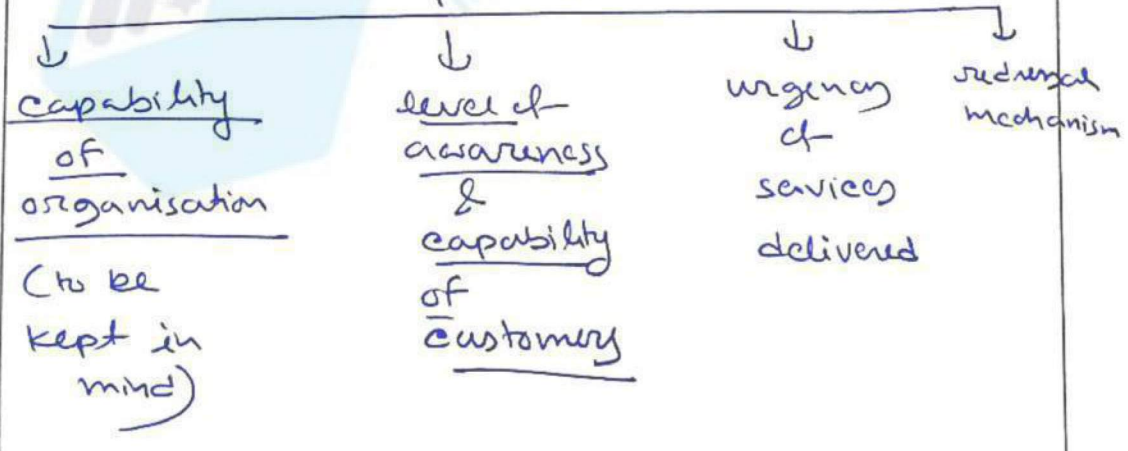 capability
of
organisation
(to be
kept in
mind)
level of
awareness
&
capability
of
customers
urgency
of
services
delivered
redressal
mechanism